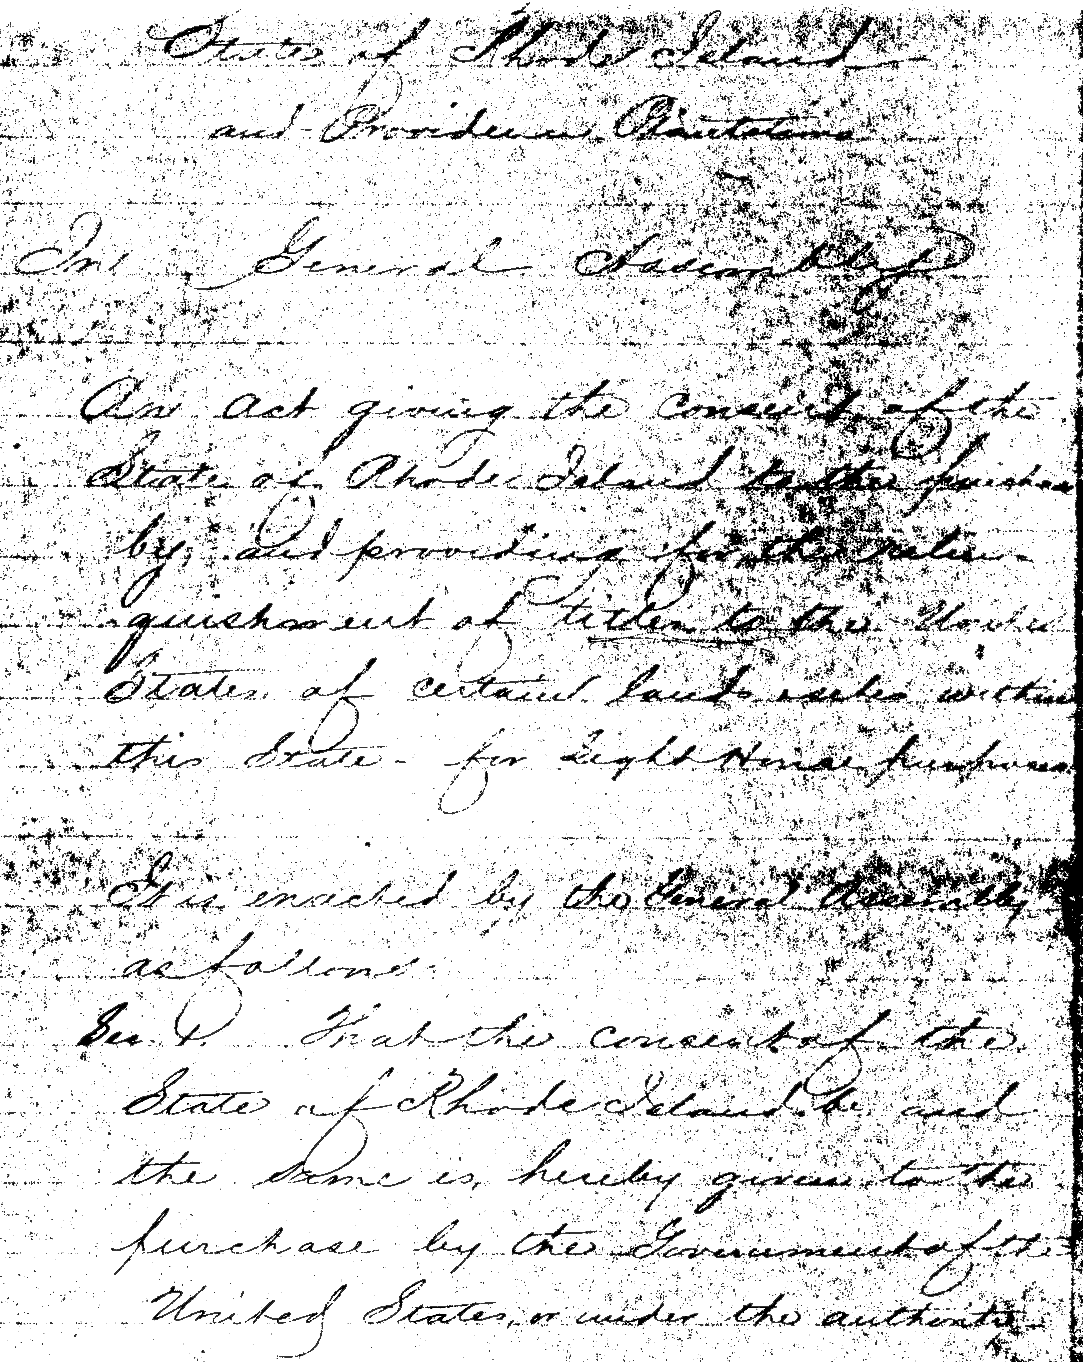 State of Rhode Island
and Providence Plantations
In General Assembly
An act giving the consent of the
State of Rhode Island to the purchase
by, and providing for the relin-
quishment of titles to the United
States of certain lands within
this State - for Light House purposes
It is enacted by the General Assembly
as follows:
Sec. 1. That the consent of the
State of Rhode Island be and
the same is, hereby given to the
purchase by the Government of the
United States, or under the authority